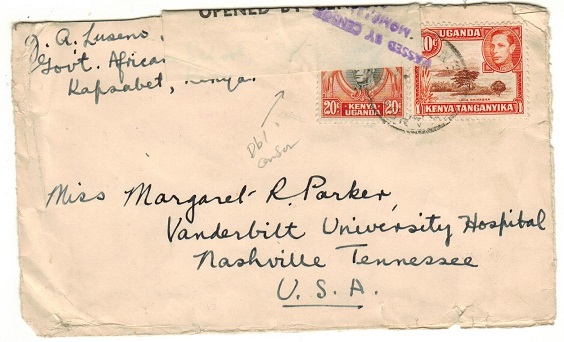 J. A. Luseno
Govt. African
Kapsabet, Kenya.
OPENED BY CENSOR
PASSED BY CENSOR
20c 20c
KENYA
UGANDA
UGANDA
10c
KENYA TANGANYIKA
Dbl
censor
Miss Margaret R. Parker,
Vanderbilt University Hospital
Nashville Tennessee
U.S.A.